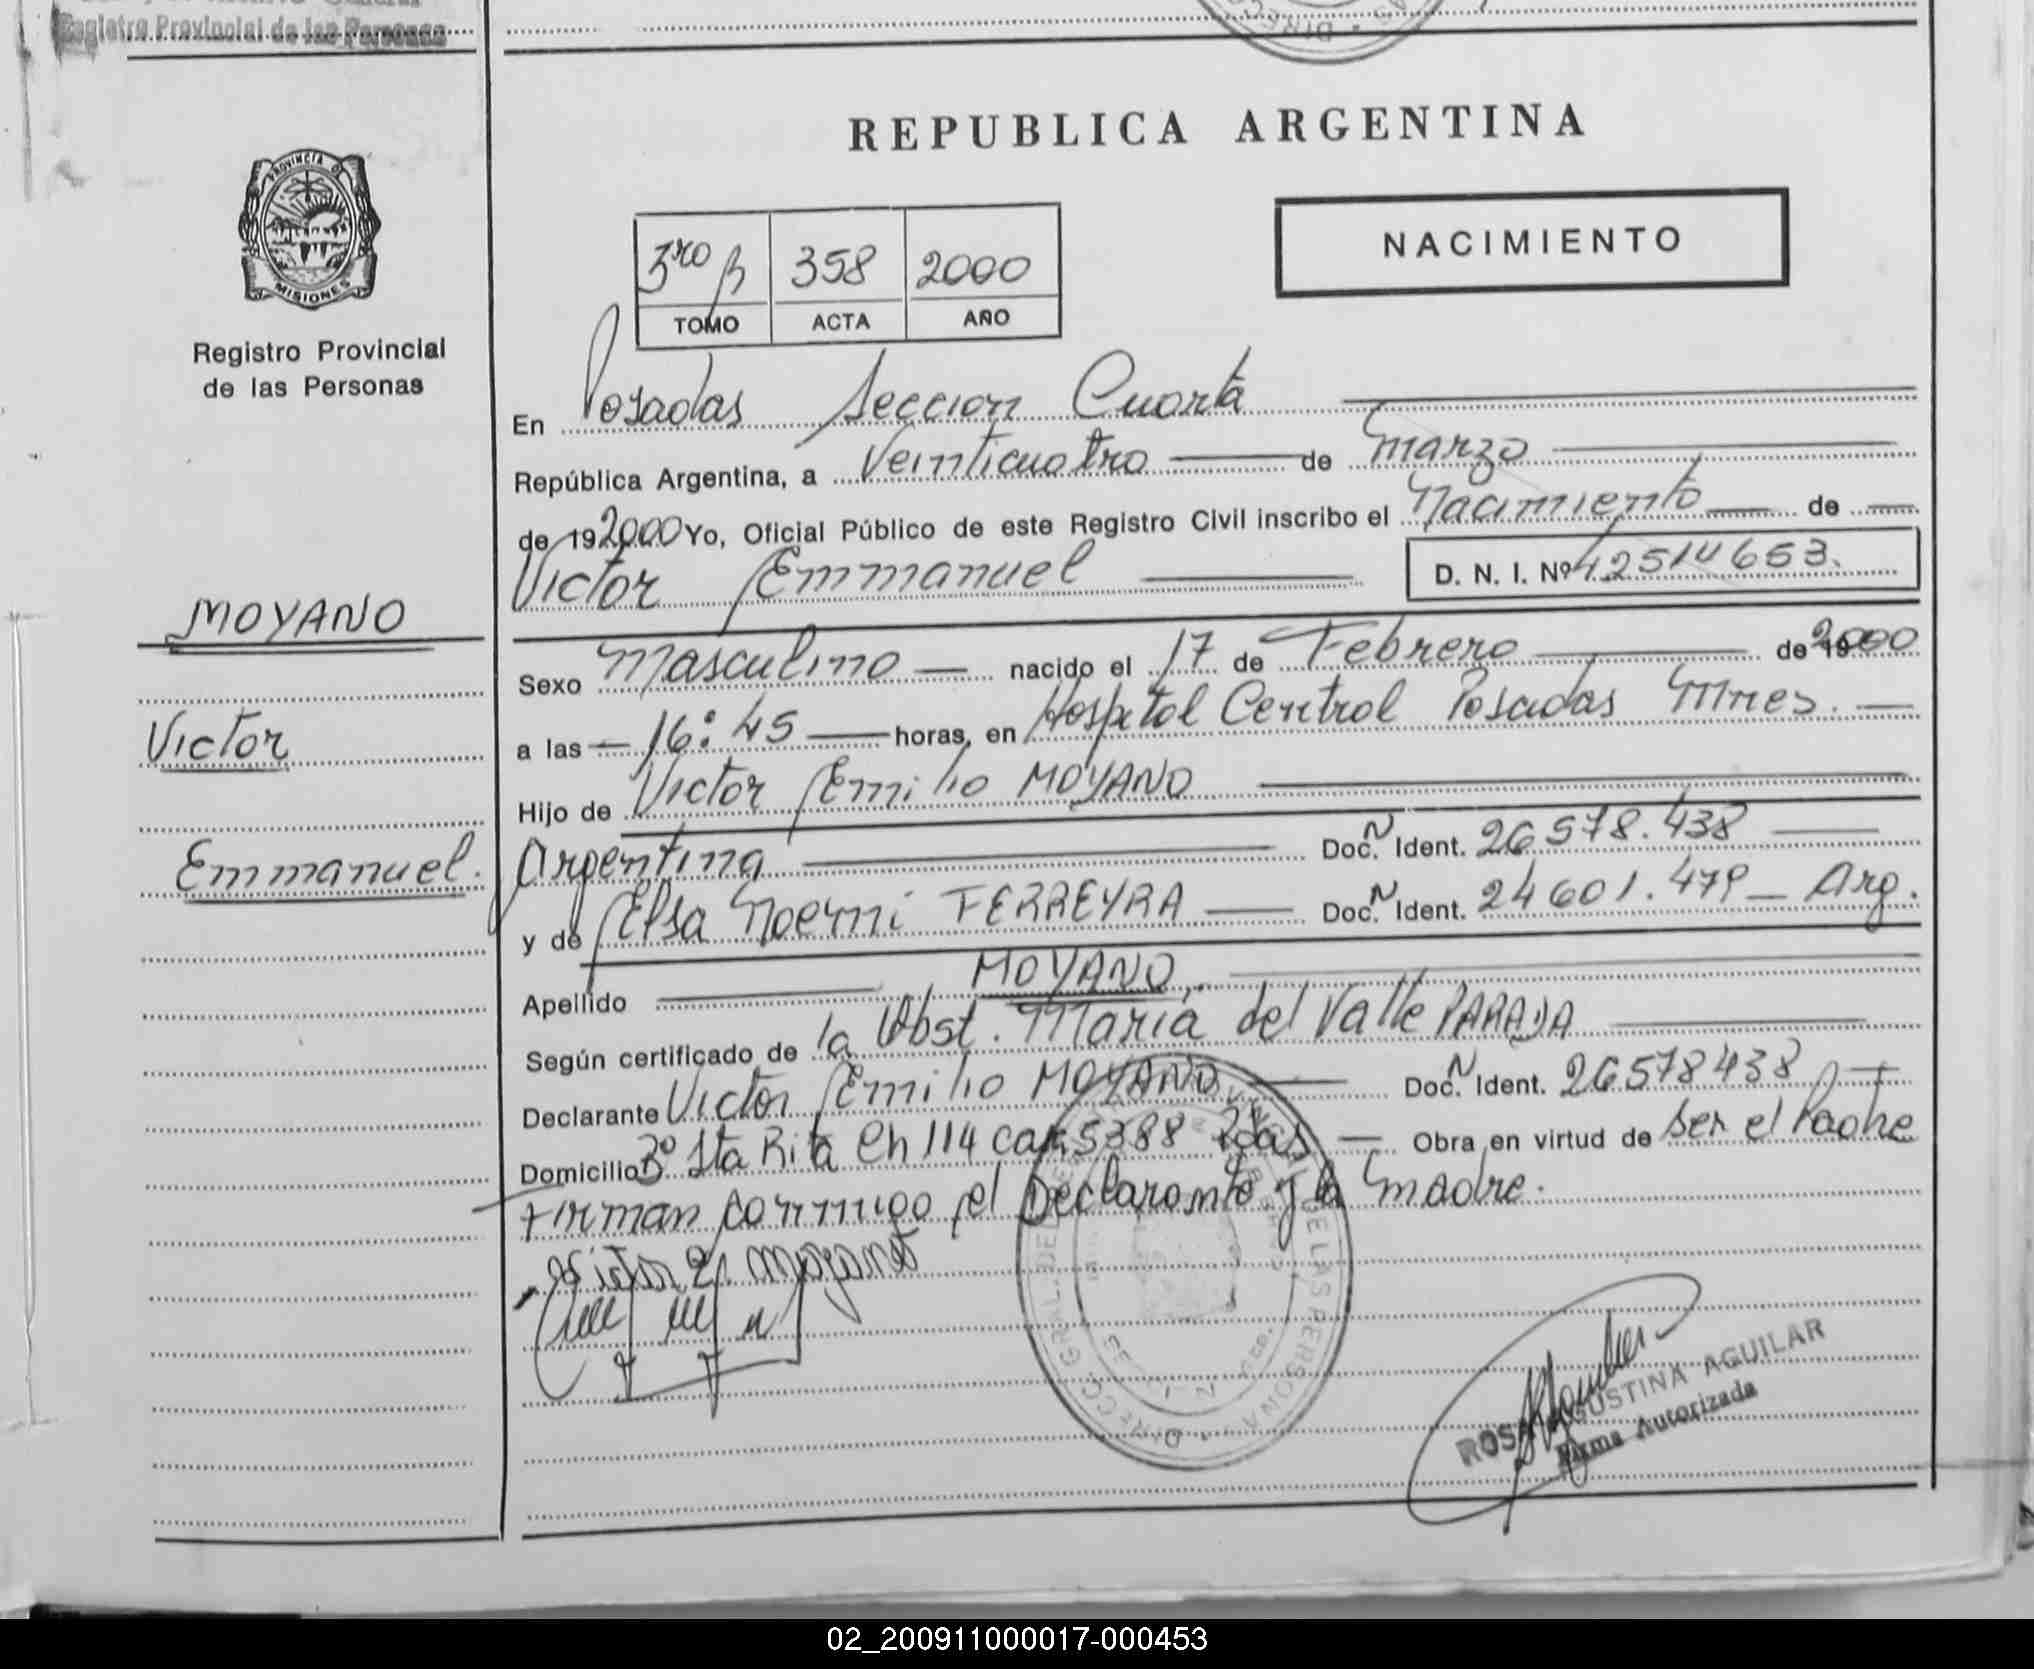 Registro Provincial de las Personas
REPUBLICA ARGENTINA
NACIMIENTO
PROVINCIA DE
MISIONES
Registro Provincial
de las Personas
3ro B 358 2000
TOMO ACTA AÑO
En Posadas Seccion Cuarta
República Argentina, a Veinticuatro de Marzo
de 192000 Yo, Oficial Público de este Registro Civil inscribo el Nacimiento de
Victor Emmanuel D. N. I. Nº 42514653.
MOYANO
Victor
Emmanuel.
Sexo Masculino nacido el 17 de Febrero de 192000
a las 16:45 horas, en Hospital Central Posadas Mnes.
Hijo de Victor Emilio MOYANO
Argentina Doc. N Ident. 26578.438
y de Elsa Noemi FERREYRA Doc. N Ident. 24601.479 Arg.
Apellido MOYANO
Según certificado de la Obst. Maria del Valle PARADA
Declarante Victor Emilio MOYANO Doc. N Ident. 26578438
Domicilio Bº Sta Rita Ch 114 cas 5388 Pdas Obra en virtud de ser el Padre
Firman conmigo el Declarante y la madre.
Victor E. Moyano
ROSA AGUSTINA AGUILAR
Firma Autorizada
02_200911000017-000453